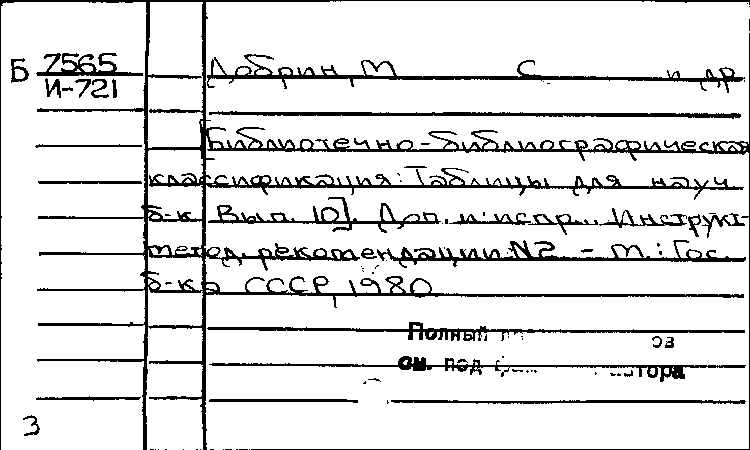 Б 7565
И-721
Добрин, М С и др
[Библиотечно-библиографическая
классификация: Таблицы для науч
б-к Вып. 10]. Доп. и испр.. Инструкт-
метод. рекомендации N2 - М.: Гос.
б-ка СССР, 1980
Полный
см. под
3